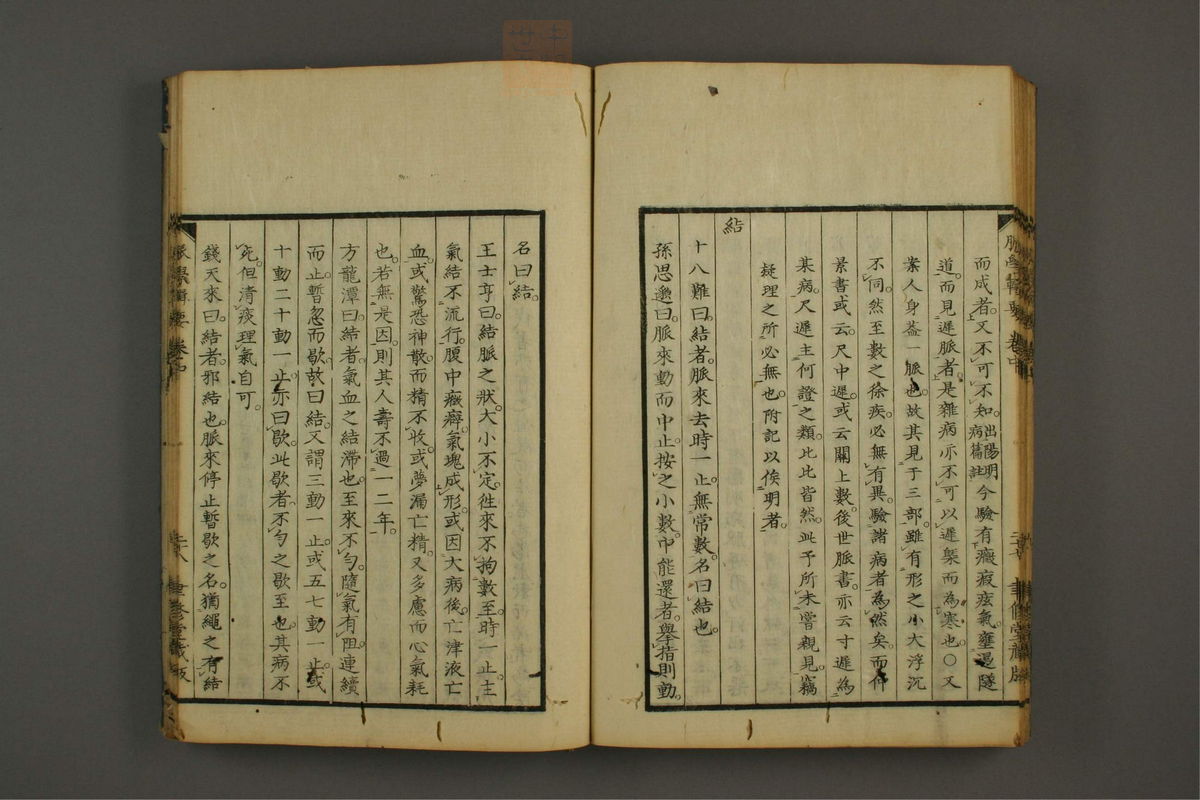 而成者又不可不知出陽明病篇註今驗有癥瘕痃氣壅遏隧
道而見遲脈者是雜病亦不可以遲槩而為寒也○又
案人身蓋一脈也故其見于三部雖有形之小大浮沉
不同然至數之徐疾必無有異驗諸病者為然矣而仲
景書或云尺中遲或云關上數後世脈書亦云寸遲為
某病尺遲主何證之類比比皆然此予所未嘗親見竊
疑理之所必無也附記以俟明者
結
十八難曰結者脈來去時一止無常數名曰結也
孫思邈曰脈來動而中止按之小數中能還者舉指則動
名曰結
王士亨曰結脈之狀大小不定徃來不拘數至時一止主
氣結不流行腹中癥癖氣塊成形或因大病後亡津液亡
血或驚恐神散而精不收或夢漏亡精又多慮而心氣耗
也若無是因則其人壽不過一二年
方龍潭曰結者氣血之結滯也至來不勻隨氣有阻連續
而止暫忽而歇故曰結又謂三動一止或五七動一止或
十動二十動一止亦曰歇此歇者不勻之歇至也其病不
死但清痰理氣自可
錢天來曰結者邪結也脈來停止暫歇之名猶繩之有結
脈學輯要 卷中 聿修堂藏版